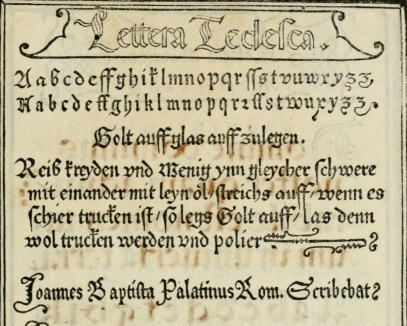 Lettera Tedesca.
A a b c d e f f g h i k l m n o p q r ſ s s t v u w x y z z
A a b c d e f f g h i k l m n o p q r ꝛ ſ s t w u x y z z
Golt auff glas auff zulegen.
Reiß kreyden vnd Menig ynn gleycher schwere
mit einander mit leyn öl/streichs auff/wenn es
schier trucken ist/so leys Golt auff/las denn
wol trucken werden vnd polier
Joannes Baptista Palatinus Rom. Scribebat